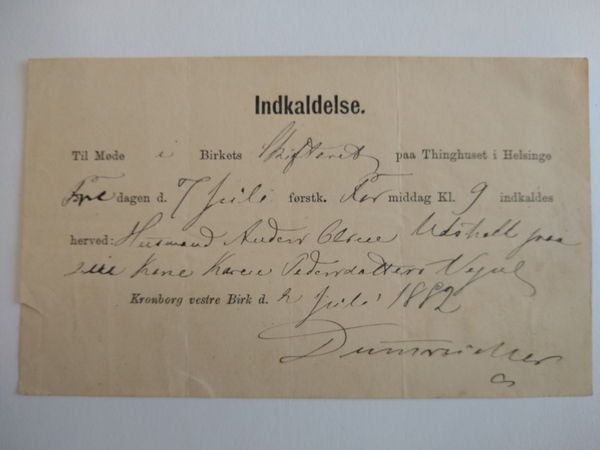 Indkaldelse.
Til Møde i Birkets Skifteret paa Thinghuset i Helsinge
Fre dagen d. 7 Juli førstk. For middag Kl. 9 indkaldes
herved: Husmand Anders Olsen paa
sin Kone Karen Pedersdatters
Kronborg vestre Birk d. 2 Juli 1882